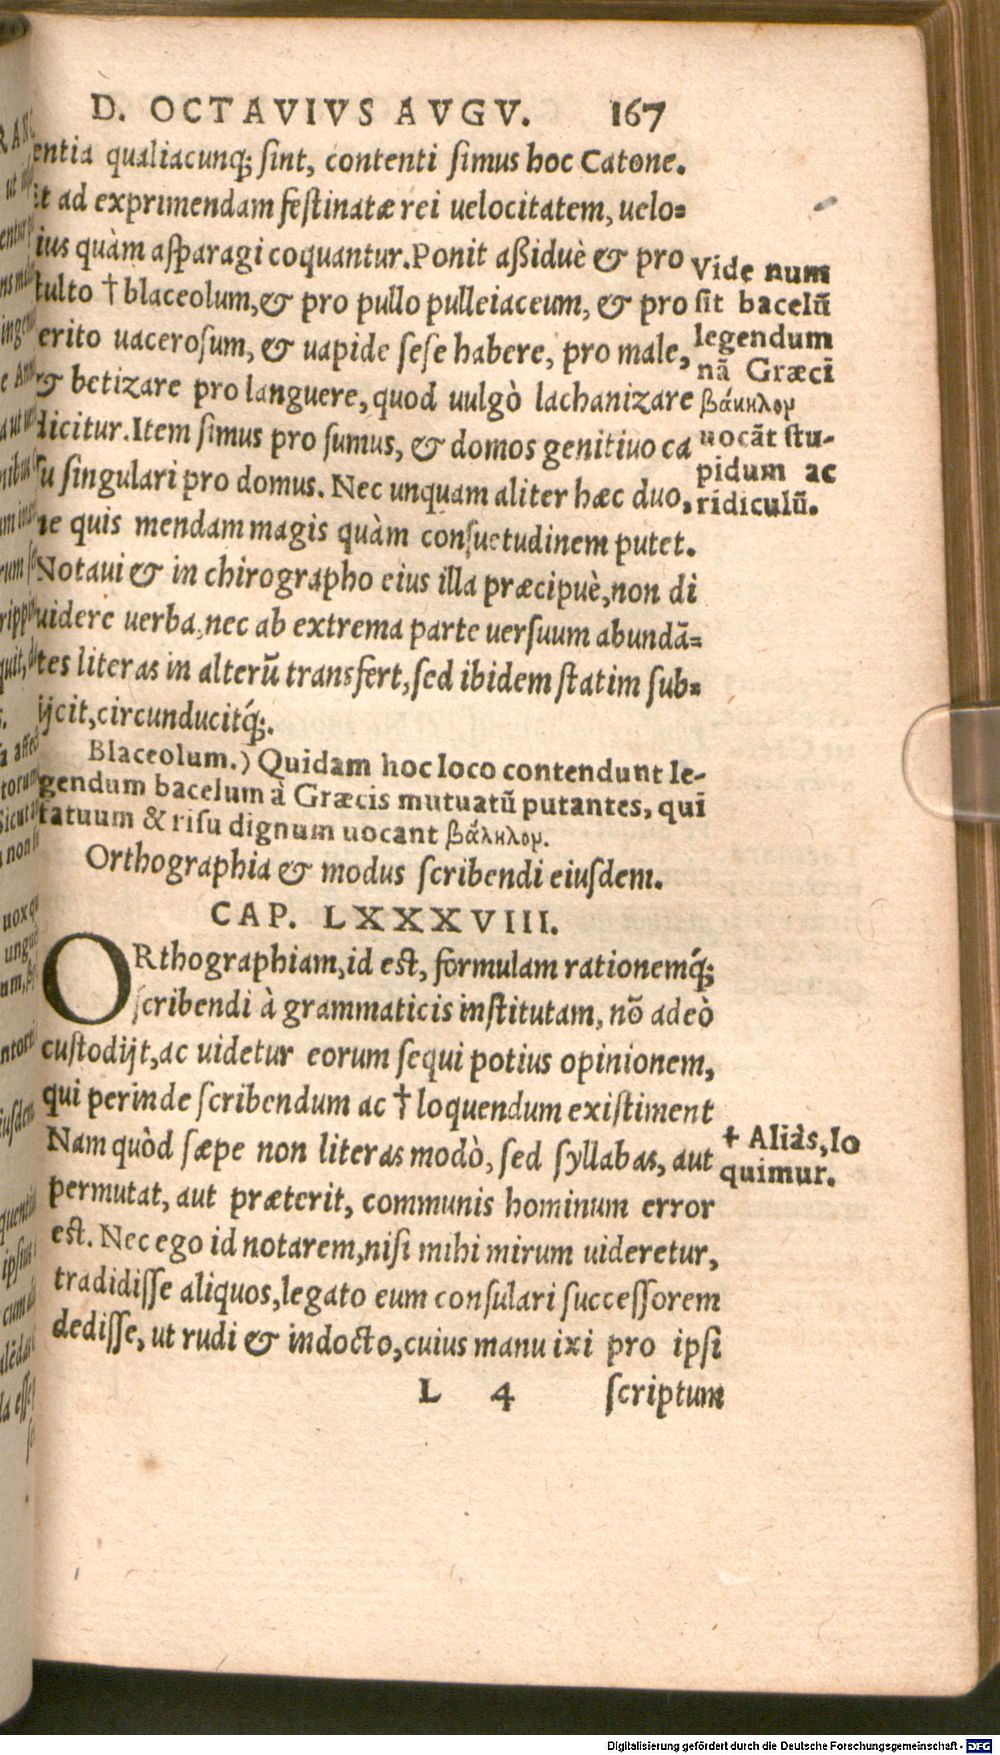 D. OCTAVIVS AVGV. 167
entia qualiacunq; sint, contenti simus hoc Catone.
t ad exprimendam festinatæ rei uelocitatem, uelo=
ius quàm asparagi coquantur. Ponit aßiduè & pro
tulto † blaceolum, & pro pullo pulleiaceum, & pro
erito uacerosum, & uapide sese habere, pro male,
& betizare pro languere, quod uulgò lachanizare
dicitur. Item simus pro sumus, & domos genitiuo ca
u singulari pro domus. Nec unquam aliter hæc duo,
ne quis mendam magis quàm consuetudinem putet.
Notaui & in chirographo eius illa præcipuè, non di
uidere uerba, nec ab extrema parte uersuum abundā=
tes literas in alterū transfert, sed ibidem statim sub=
ijcit, circunducitq́;.
Vide num
sit bacelū
legendum
nā Græci
βάκηλον
uocāt stu-
pidum ac
ridiculū.
Blaceolum.) Quidam hoc loco contendunt le-
gendum bacelum à Græcis mutuatū putantes, qui
fatuum & risu dignum uocant βάκηλον.
Orthographia & modus scribendi eiusdem.
CAP. LXXXVIII.
ORthographiam, id est, formulam rationemq́;
scribendi à grammaticis institutam, nō adeò
custodijt, ac uidetur eorum sequi potius opinionem,
qui perinde scribendum ac † loquendum existiment
Nam quòd sæpe non literas modò, sed syllabas, aut
permutat, aut præterit, communis hominum error
est. Nec ego id notarem, nisi mihi mirum uideretur,
tradidisse aliquos, legato eum consulari successorem
dedisse, ut rudi & indocto, cuius manu ixi pro ipsi
† Aliàs, lo
quimur.
L 4 scriptum
Digitalisierung gefördert durch die Deutsche Forschungsgemeinschaft - DFG